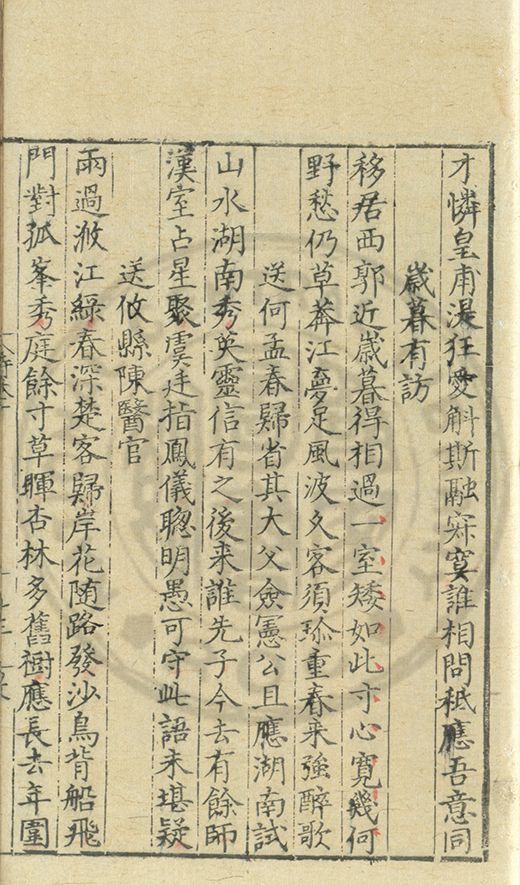 才憐皇甫湜狂愛斛斯融寂寞誰相問秪應吾意同
歲暮有訪
移居西郭近歲暮得相過一室矮如此寸心寬幾何
野愁仍草莽江夢足風波久客須珎重春来強醉歌
送何孟春歸省其大父僉憲公且應湖南試
山水湖南秀英靈信有之後来誰先子今去有餘師
漢室占星聚虞廷指鳳儀聰明愚可守此語未堪疑
送攸縣陳醫官
雨過攸江綠春深楚客歸岸花随路發沙鳥背船飛
門對孤峯秀庭餘寸草暉杏林多舊樹應長去年圍